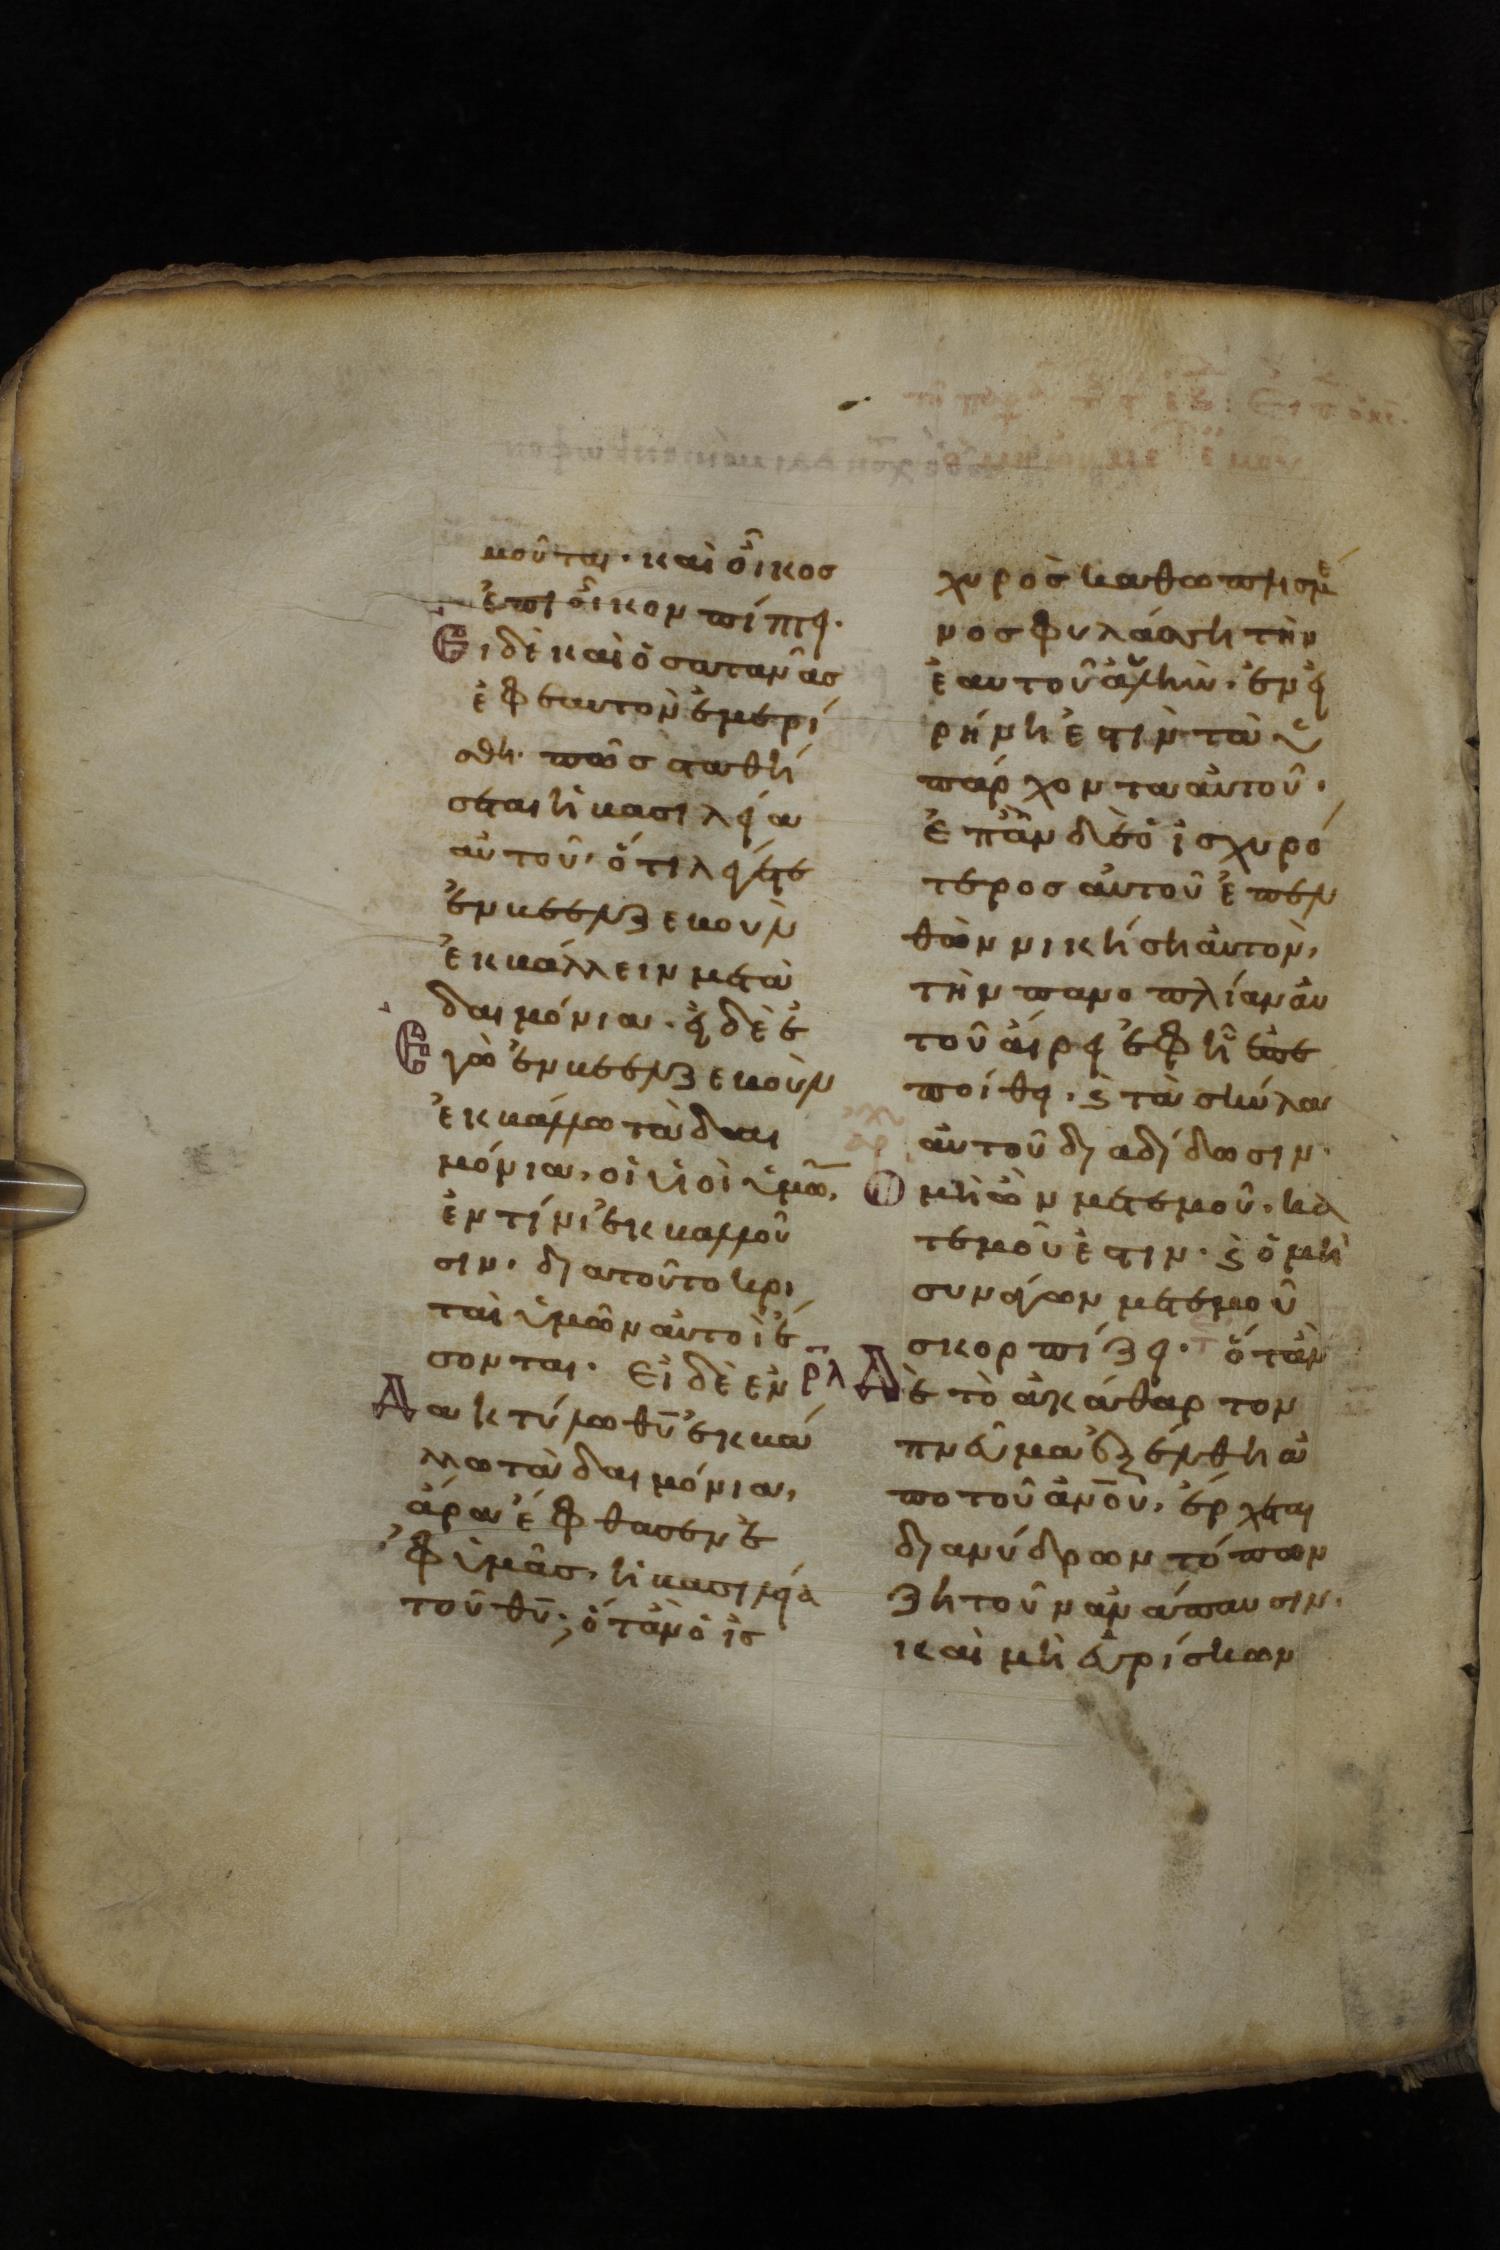 μοῦται· καὶ οἶκοσ
ἐπὶ οἶκον πίπτει·
Ει δὲ καὶ ὁ σατανᾶσ
ἐφ εαυτὸν ἐμερί
σθη· πῶσ σταθή
σεται ἡ βασιλεία
αὐτοῦ· ὅτι λέγετε
ἐν βεελζεβοὺλ
ἐκβάλλειν με τὰ
δαιμόνια· εἰ δὲ ἐ
Εγὼ ἐν βεελζεβοὺλ
ἐκβάλλω τὰ δαι
μόνια, οἱ υἱοὶ ὑμῶ̅,
ἐν τίνι ἐκβαλλοῦ
σιν· διατοῦτο κρι
ταὶ ὑμῶν αὐτοὶ ἔ
σονται· Εἰ δὲ ἐν
Δακτύλω θ̅υ̅ ἐκβά
λλω τὰ δαιμόνια,
ἄρα ἔφθασεν ἐ
φ ὑμᾶσ, ἡ βασιλεία
τοῦ θ̅υ̅· ὅταν ὁ ἰσ
χυρὸσ καθωπλισμέ
νοσ φυλάσση τὴν
ἑαυτοῦ ἀυλὴν· ἐν εἰ
ρήνη ἐστὶν τὰ ὑ
πάρχοντα αὐτοῦ·
ἐπὰν δὲ ὁ ἰσχυρό
τερος αὐτοῦ ἐπελ
θὼν νικήση αὐτὸν,
τὴν πανοπλίαν αὐ
τοῦ αἴρει ἐφ ἧ ἐπε
ποίθει· ϗ τὰ σκύλα
αὐτοῦ διαδίδωσιν·
Ο μὴ ὢν μετεμοῦ· κα
τεμοῦ ἐστιν· ϗ ὁ μὴ
συνάγων μετεμοῦ
σκορπίζει· ὅταν
ρλα
δὲ τὸ ἀκάθαρτον
πνεῦμα ἐξέλθη ἀ
πο τοῦ ἀν̅ου̅, ἔρχεται
δι ανύδρων τόπων
ζητοῦν ανάπαυσιν·
καὶ μὴ εὑρίσκων